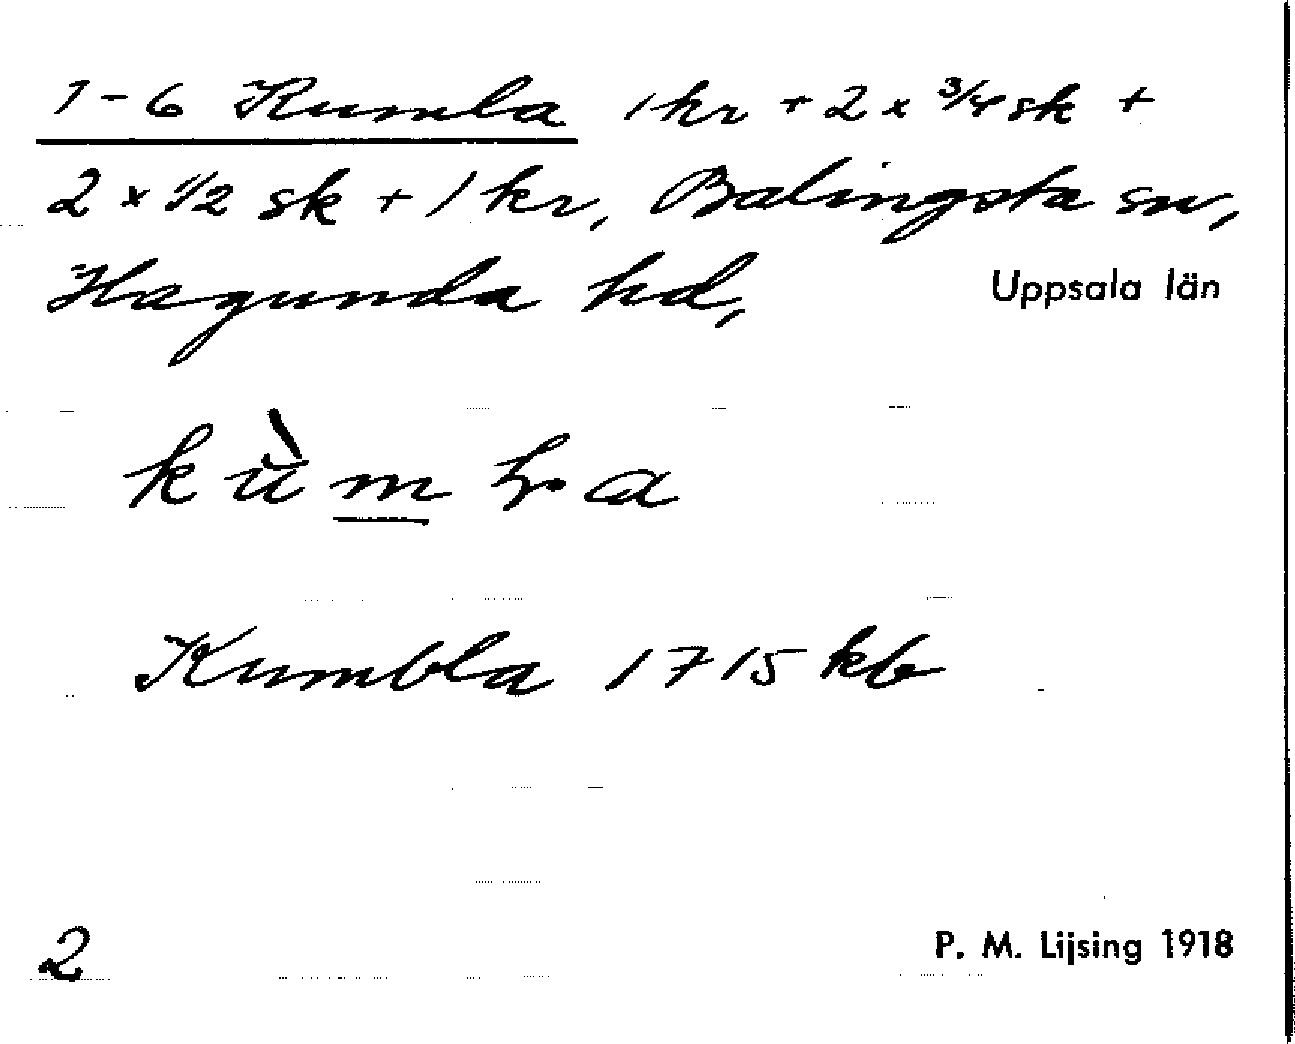 1-6 Kumla 1 kr + 2 x 3/4 sk +
2 x 1/2 sk + 1 kr, Balingsta sn,
Hagunda hd, Uppsala län
Kumbla 1715 kb
2 P. M. Lijsing 1918